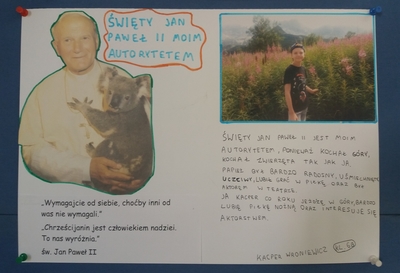 ŚWIĘTY JAN
PAWEŁ II MOIM
AUTORYTETEM
„Wymagajcie od siebie, choćby inni od
was nie wymagali."
„Chrześcijanin jest człowiekiem nadziei.
To nas wyróżnia."
św. Jan Paweł II
ŚWIĘTY JAN PAWEŁ II JEST MOIM
AUTORYTETEM, PONIEWAŻ KOCHAŁ GÓRY,
KOCHAŁ ZWIERZĘTA TAK JAK JA
PAPIEŻ BYŁ BARDZO RADOSNY, UŚMIECHNIĘTY
UCZCIWY, LUBIŁ GRAĆ W PIŁKĘ ORAZ BYŁ
AKTOREM W TEATRZE.
JA KACPER CO ROKU JEŻDŻĘ W GÓRY, BARDZO
LUBIĘ PIŁKĘ NOŻNĄ ORAZ INTERESUJE SIĘ
AKTORSTWEM.
KACPER